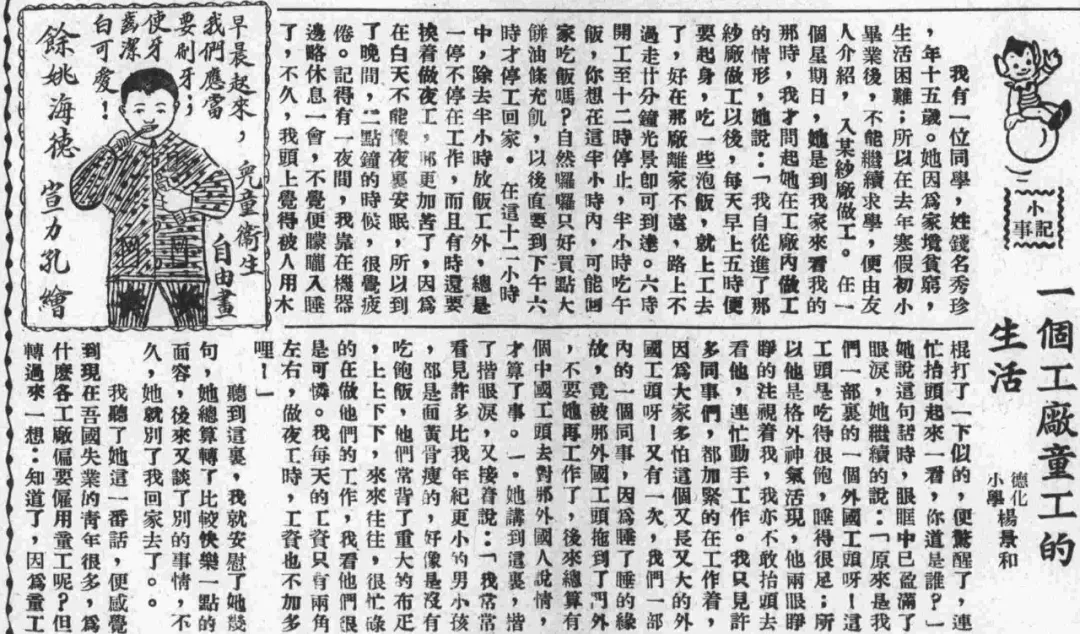 小記事
一個工廠童工的
生活
德化
小學 楊景和
我有一位同學，姓錢名秀珍
，年十五歲。她因爲家境貧窮，
生活困難；所以在去年寒假初小
畢業後，不能繼續求學，便由友
人介紹，入某紗廠做工。在一
個星期日，她是到我家來看我的
那時，我才問起她在工廠內做工
的情形，她說：「我自從進了那
紗廠做工以後，每天早上五時便
要起身，吃一些泡飯，就上工去
了，好在那廠離家不遠，路上不
過走廿分鐘光景卽可到達。六時
開工至十二時停止，半小時吃午
飯，你想在這半小時內，可能回
家吃飯嗎？自然囉囉只好買點大
餅油條充飢，以後直要到下午六
時才停工回家。在這十二小時
中，除去半小時放飯工外，總是
一停不停在工作，而且有時還要
挨着做夜工，那更加苦了，因爲
在白天不能像夜裏安眠，所以到
了晚間，二點鐘的時候，很覺疲
倦。記得有一夜間，我靠在機器
邊略休息一會，不覺便朦朧入睡
了，不久，我頭上覺得被人用木
棍打了一下似的，便驚醒了，連
忙抬頭起來一看，你道是誰？」
她說這句話時，眼眶中已盈滿了
眼淚，她繼續的說：「原來是我
們一部裏的一個外國工頭呀！這
工頭是吃得很飽，睡得很足；所
以他是格外神氣活現，他兩眼睜
睜的注視着我，我亦不敢抬頭去
看他，連忙動手工作。我只見許
多同事們，都加緊的在工作着，
因爲大家多怕這個又長又大的外
國工頭呀！又有一次，我們一部
內的一個同事，因爲睡了睡的緣
故，竟被那外國工頭拖到了門外
，不要她再工作了，後來總算有
個中國工頭去對那外國人說情，
才算了事。」她講到這裏，揩
了揩眼淚，又接着說：「我常常
看見許多比我年紀更小的男小孩
，都是面黃骨瘦的，好像是沒有
吃飽飯，他們常背了重大的布疋
，上上下下，來來往往，很忙碌
的在做他們的工作，我看他們很
是可憐。我每天的工資只有兩角
左右，做夜工時，工資也不加多
哩！」
聽到這裏，我就安慰了她幾
句，她總算轉了比較快樂一點的
面容，後來又談了別的事情，不
久，她就別了我回家去了。。
我聽了她這一番話，便感覺
到現在吾國失業的青年很多，爲
什麼各工廠偏要僱用童工呢？但
轉過來一想：知道了，因爲童工
早晨起來，
我們應當
要刷牙；
使牙
齒潔
白可愛！
兒童衛生
自由畫
餘姚海德 宣力孔繪